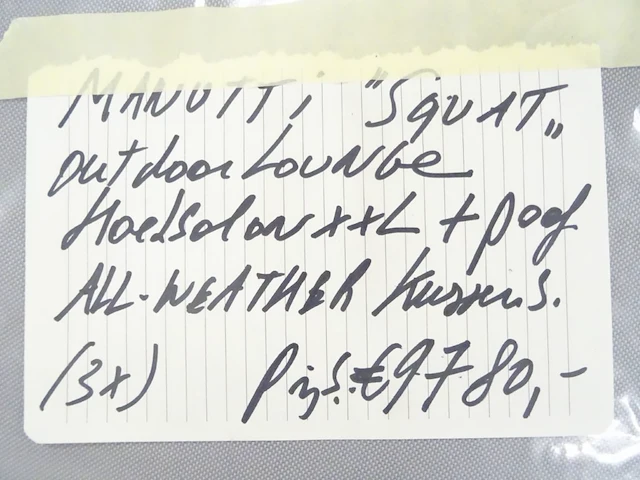 MANUTTI "SQUAT"
outdoor LOUNGE
Hoeksalon XXL + poef
ALL-WEATHER Kussens.
(3x) Prijs. €9780,-